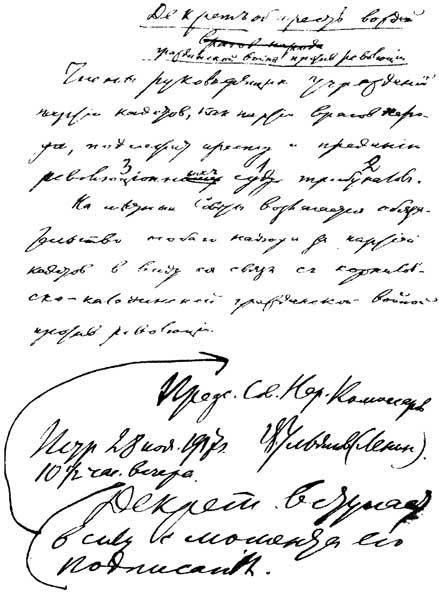 Декретъ об аресте вождей
врагов народа
гражданской войны против революции
Члены руководящих учреждений
партии кадетов, как партии врагов наро-
да, подлежат аресту и преданию
3 1 2
революционных суду трибуналов.
На местные Советы возлагается обяза-
тельство особого надзора за партией
кадетов в виду ея связи съ корнилов-
ско-калединской гражданской войной
против революции.
Предс. Св. Нар. Комиссаров
Петр 28 ноя. 1917 г. Вл Ульянов (Ленин).
10½ час. вечера.
Декрет вступает
в силу с момента его
подписания.